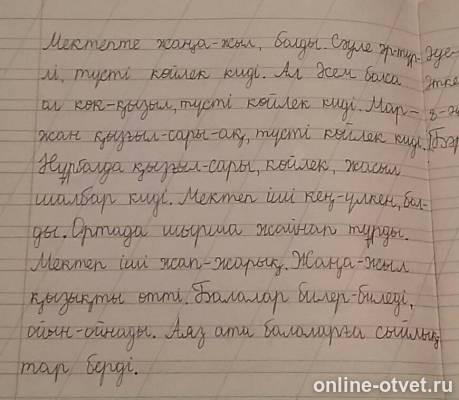 Мектепте жаңа-жыл, болды. Сәуле әр-түр-
лі, түсті көйлек киді. Ал Әсем болса
ал көк-қызыл, түсті көйлек киді. Мар-
жан қызғыл-сары-ақ, түсті көйлек киді.
Нұрбалда қызғыл-сары, көйлек, жасыл
шалбар киді. Мектеп іші кең-үлкен, бол-
ды. Ортада шырша жайнап тұрды.
Мектеп іші жап-жарық. Жаңа-жыл
қызықты өтті. Балалар билер-биледі,
ойын-ойнады. Аяз ата балаларға сыйлық
тар берді.
online-otvet.ru